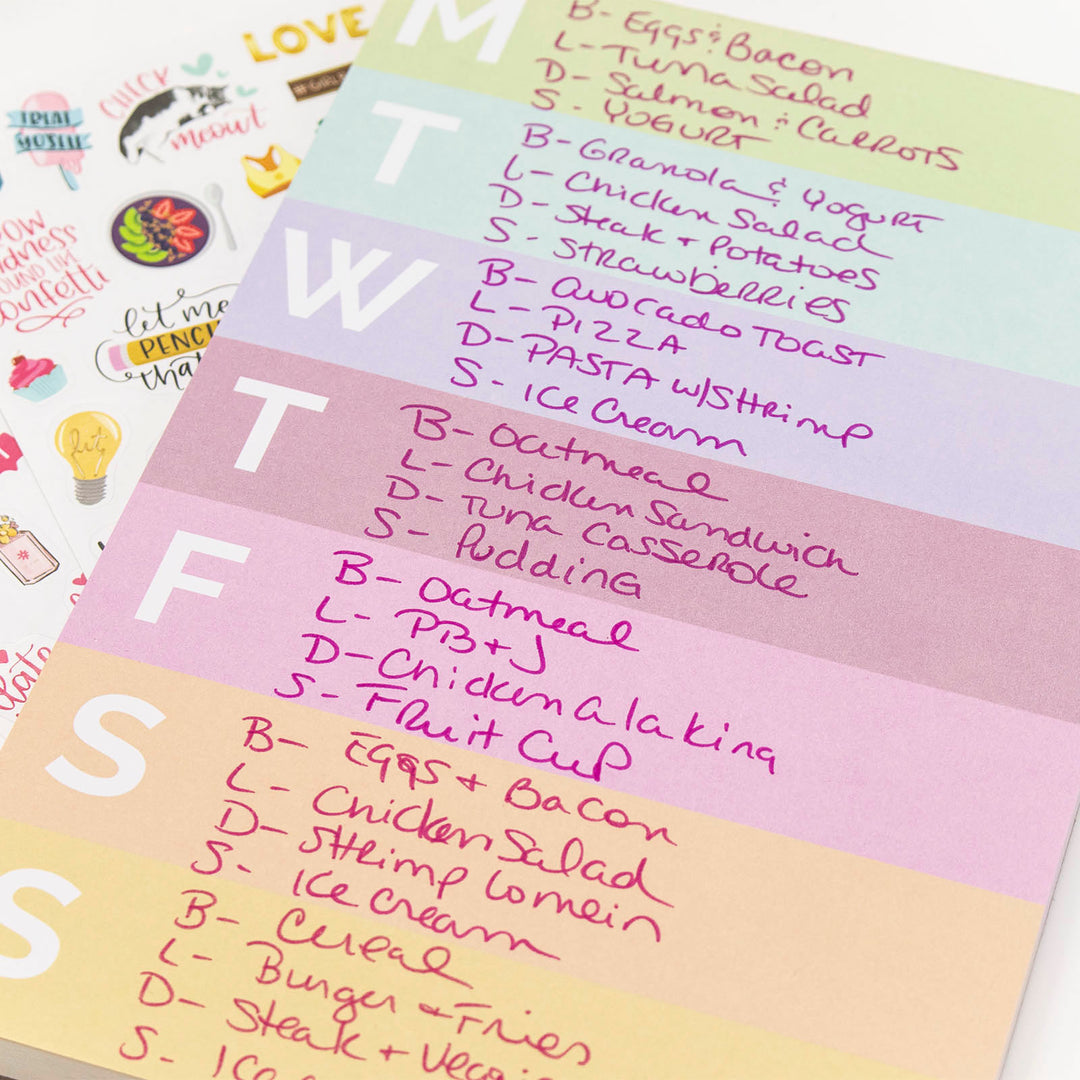 LOVE
CHECK
meowt
TREAT
YOSELF
confetti
let me
PENCIL
that
lit
M
B- Eggs & Bacon
L- Tuna Salad
D- Salmon & Carrots
S- Yogurt
T
B- Granola & Yogurt
L- Chicken Salad
D- Steak + Potatoes
S- Strawberries
W
B- Avocado Toast
L- Pizza
D- Pasta w/Shrimp
S- Ice Cream
T
B- Oatmeal
L- Chicken Sandwich
D- Tuna Casserole
S- Pudding
F
B- Oatmeal
L- PB+J
D- Chicken a la king
S- Fruit Cup
S
B- Eggs + Bacon
L- Chicken Salad
D- Shrimp Lo mein
S- Ice Cream
S
B- Cereal
L- Burger + Fries
D- Steak +
S- Ice